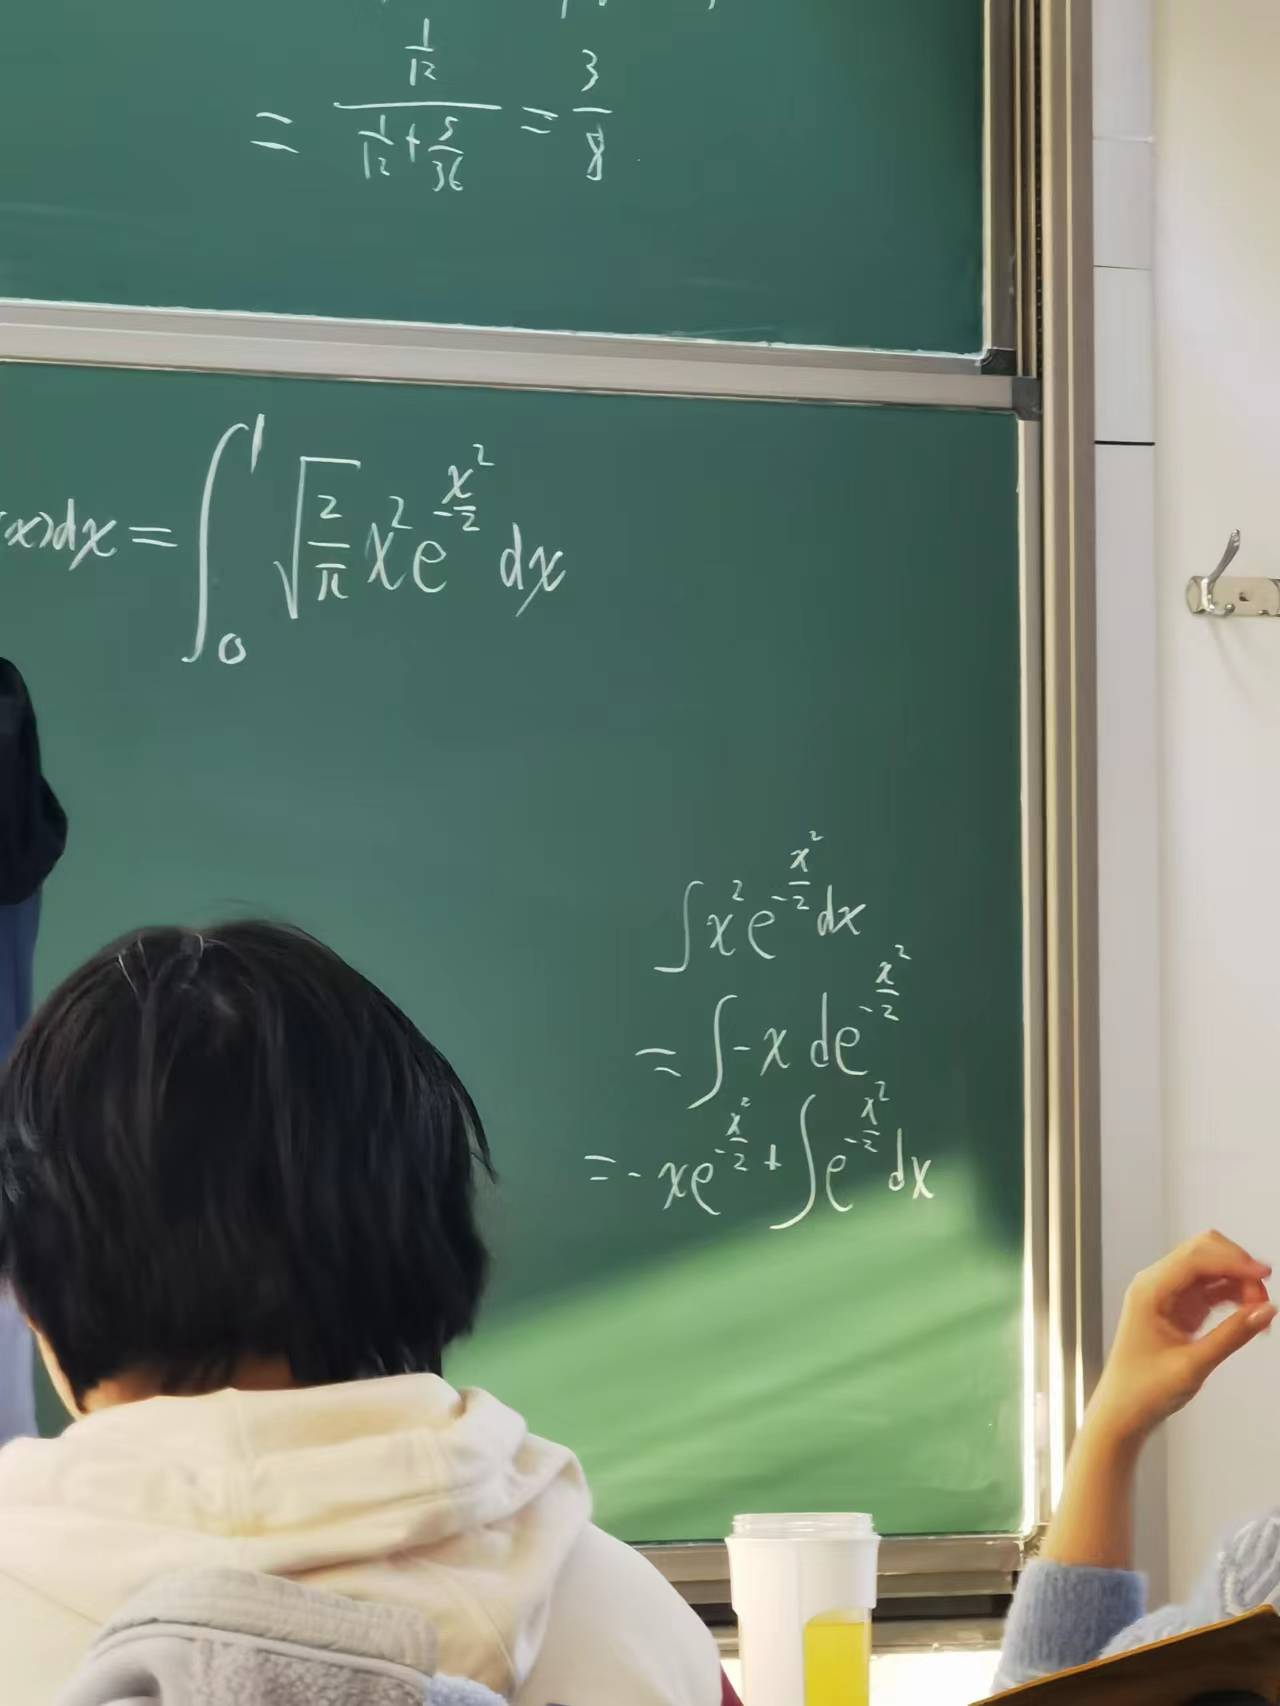 = \frac{\frac{1}{12}}{\frac{1}{12}+\frac{5}{36}} = \frac{3}{8}.
x)dx = \int_0^1 \sqrt{\frac{2}{\pi}} x^2 e^{-\frac{x^2}{2}} dx
\int x^2 e^{-\frac{x^2}{2}} dx
= \int -x de^{-\frac{x^2}{2}}
= -xe^{-\frac{x^2}{2}} + \int e^{-\frac{x^2}{2}} dx